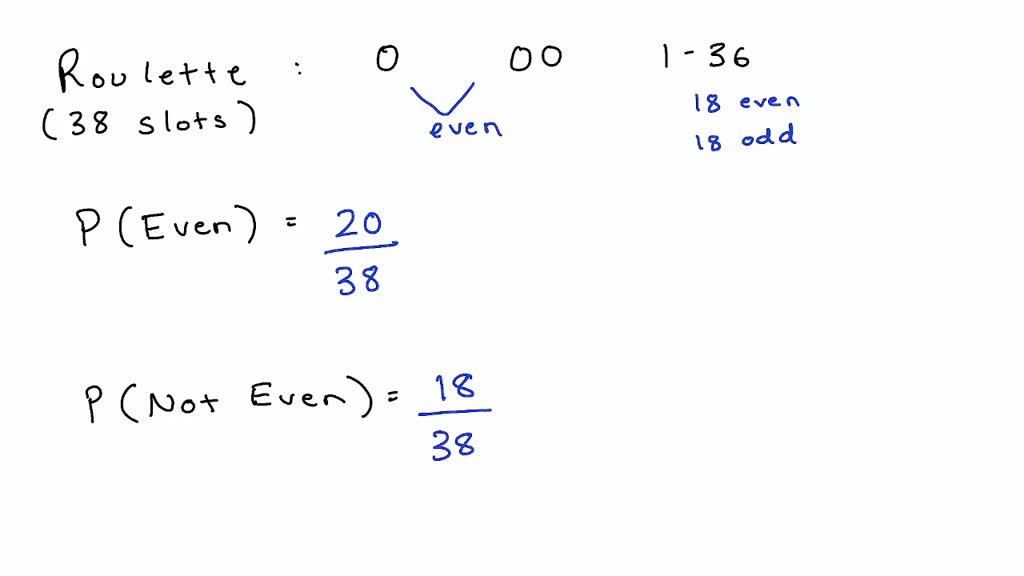 Roulette : 0 00 1-36
(38 slots) even 18 even
18 odd
P(Even) = 20/38
P(Not Even) = 18/38